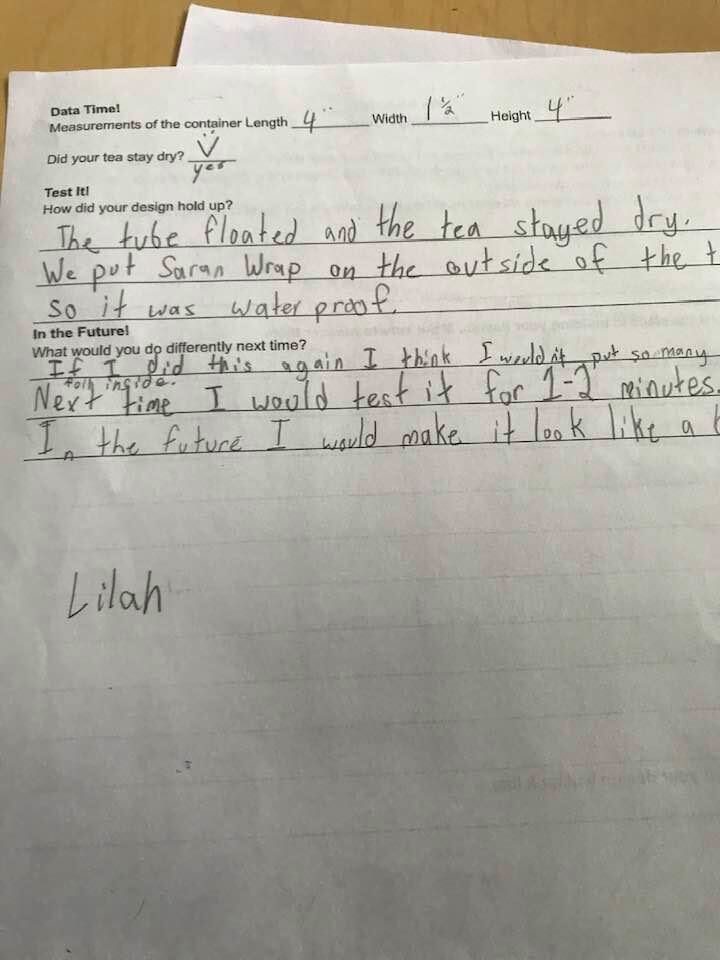 Data Time!
Measurements of the container Length 4" Width 1 1/2" Height 4"
Did your tea stay dry? yes
Test It!
How did your design hold up?
The tube floated and the tea stayed dry.
We put Saran Wrap on the outside of the t
so it was water proof.
In the Future!
What would you do differently next time?
If I did this again I think I would nt put so many
foil inside.
Next time I would test it for 1-2 minutes.
In the future I would make it look like a
Lilah